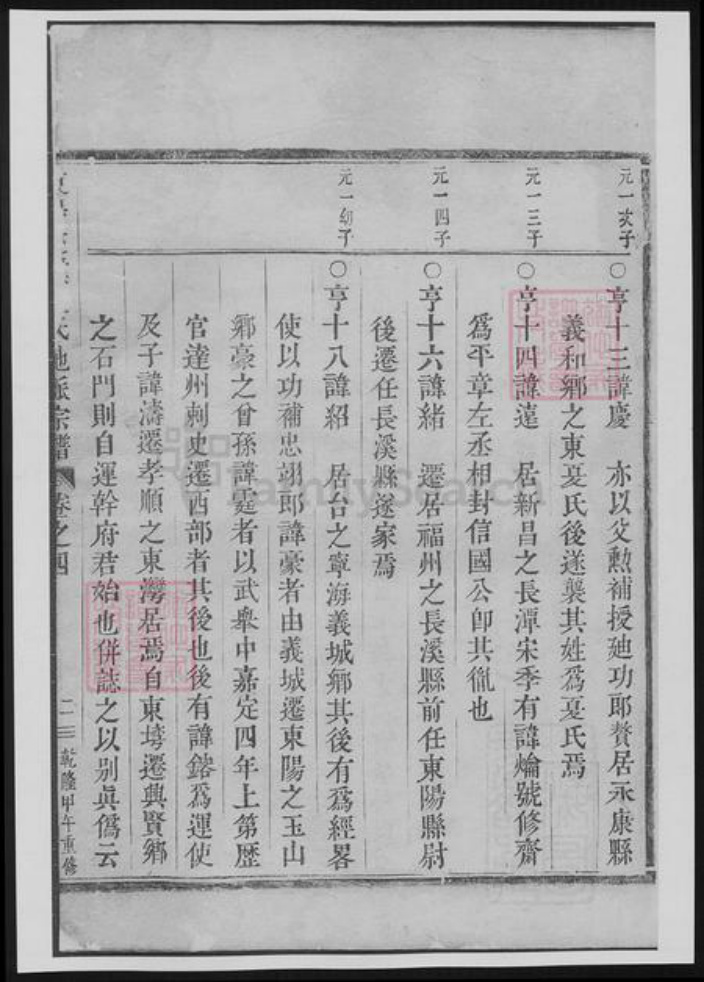 元一次子
○亨十三諱慶　亦以父勲補授廸功郎贅居永康縣
義和鄉之東夏氏後遂襲其姓爲夏氏焉
元一三子
○亨十四諱遠　居新昌之長潭宋季有諱爚號修齋
爲平章左丞相封信國公卽其胤也
元一四子
○亨十六諱緒　遷居福州之長溪縣前任東陽縣尉
後遷任長溪縣遂家焉
元一幼子
○亨十八諱紹　居台之寧海義城鄉其後有爲經畧
使以功補忠翊郎諱豪者由義城遷東陽之玉山
鄉豪之曾孫諱霆者以武舉中嘉定四年上第歷
官達州刺史遷西部者其後也後有諱鎔爲運使
及子諱濤遷孝順之東灣居焉自東塆遷興賢鄉
之石門則自運幹府君始也併誌之以别眞僞云
氏地派宗譜　卷之四　二　乾隆甲午重修
FamilySearch